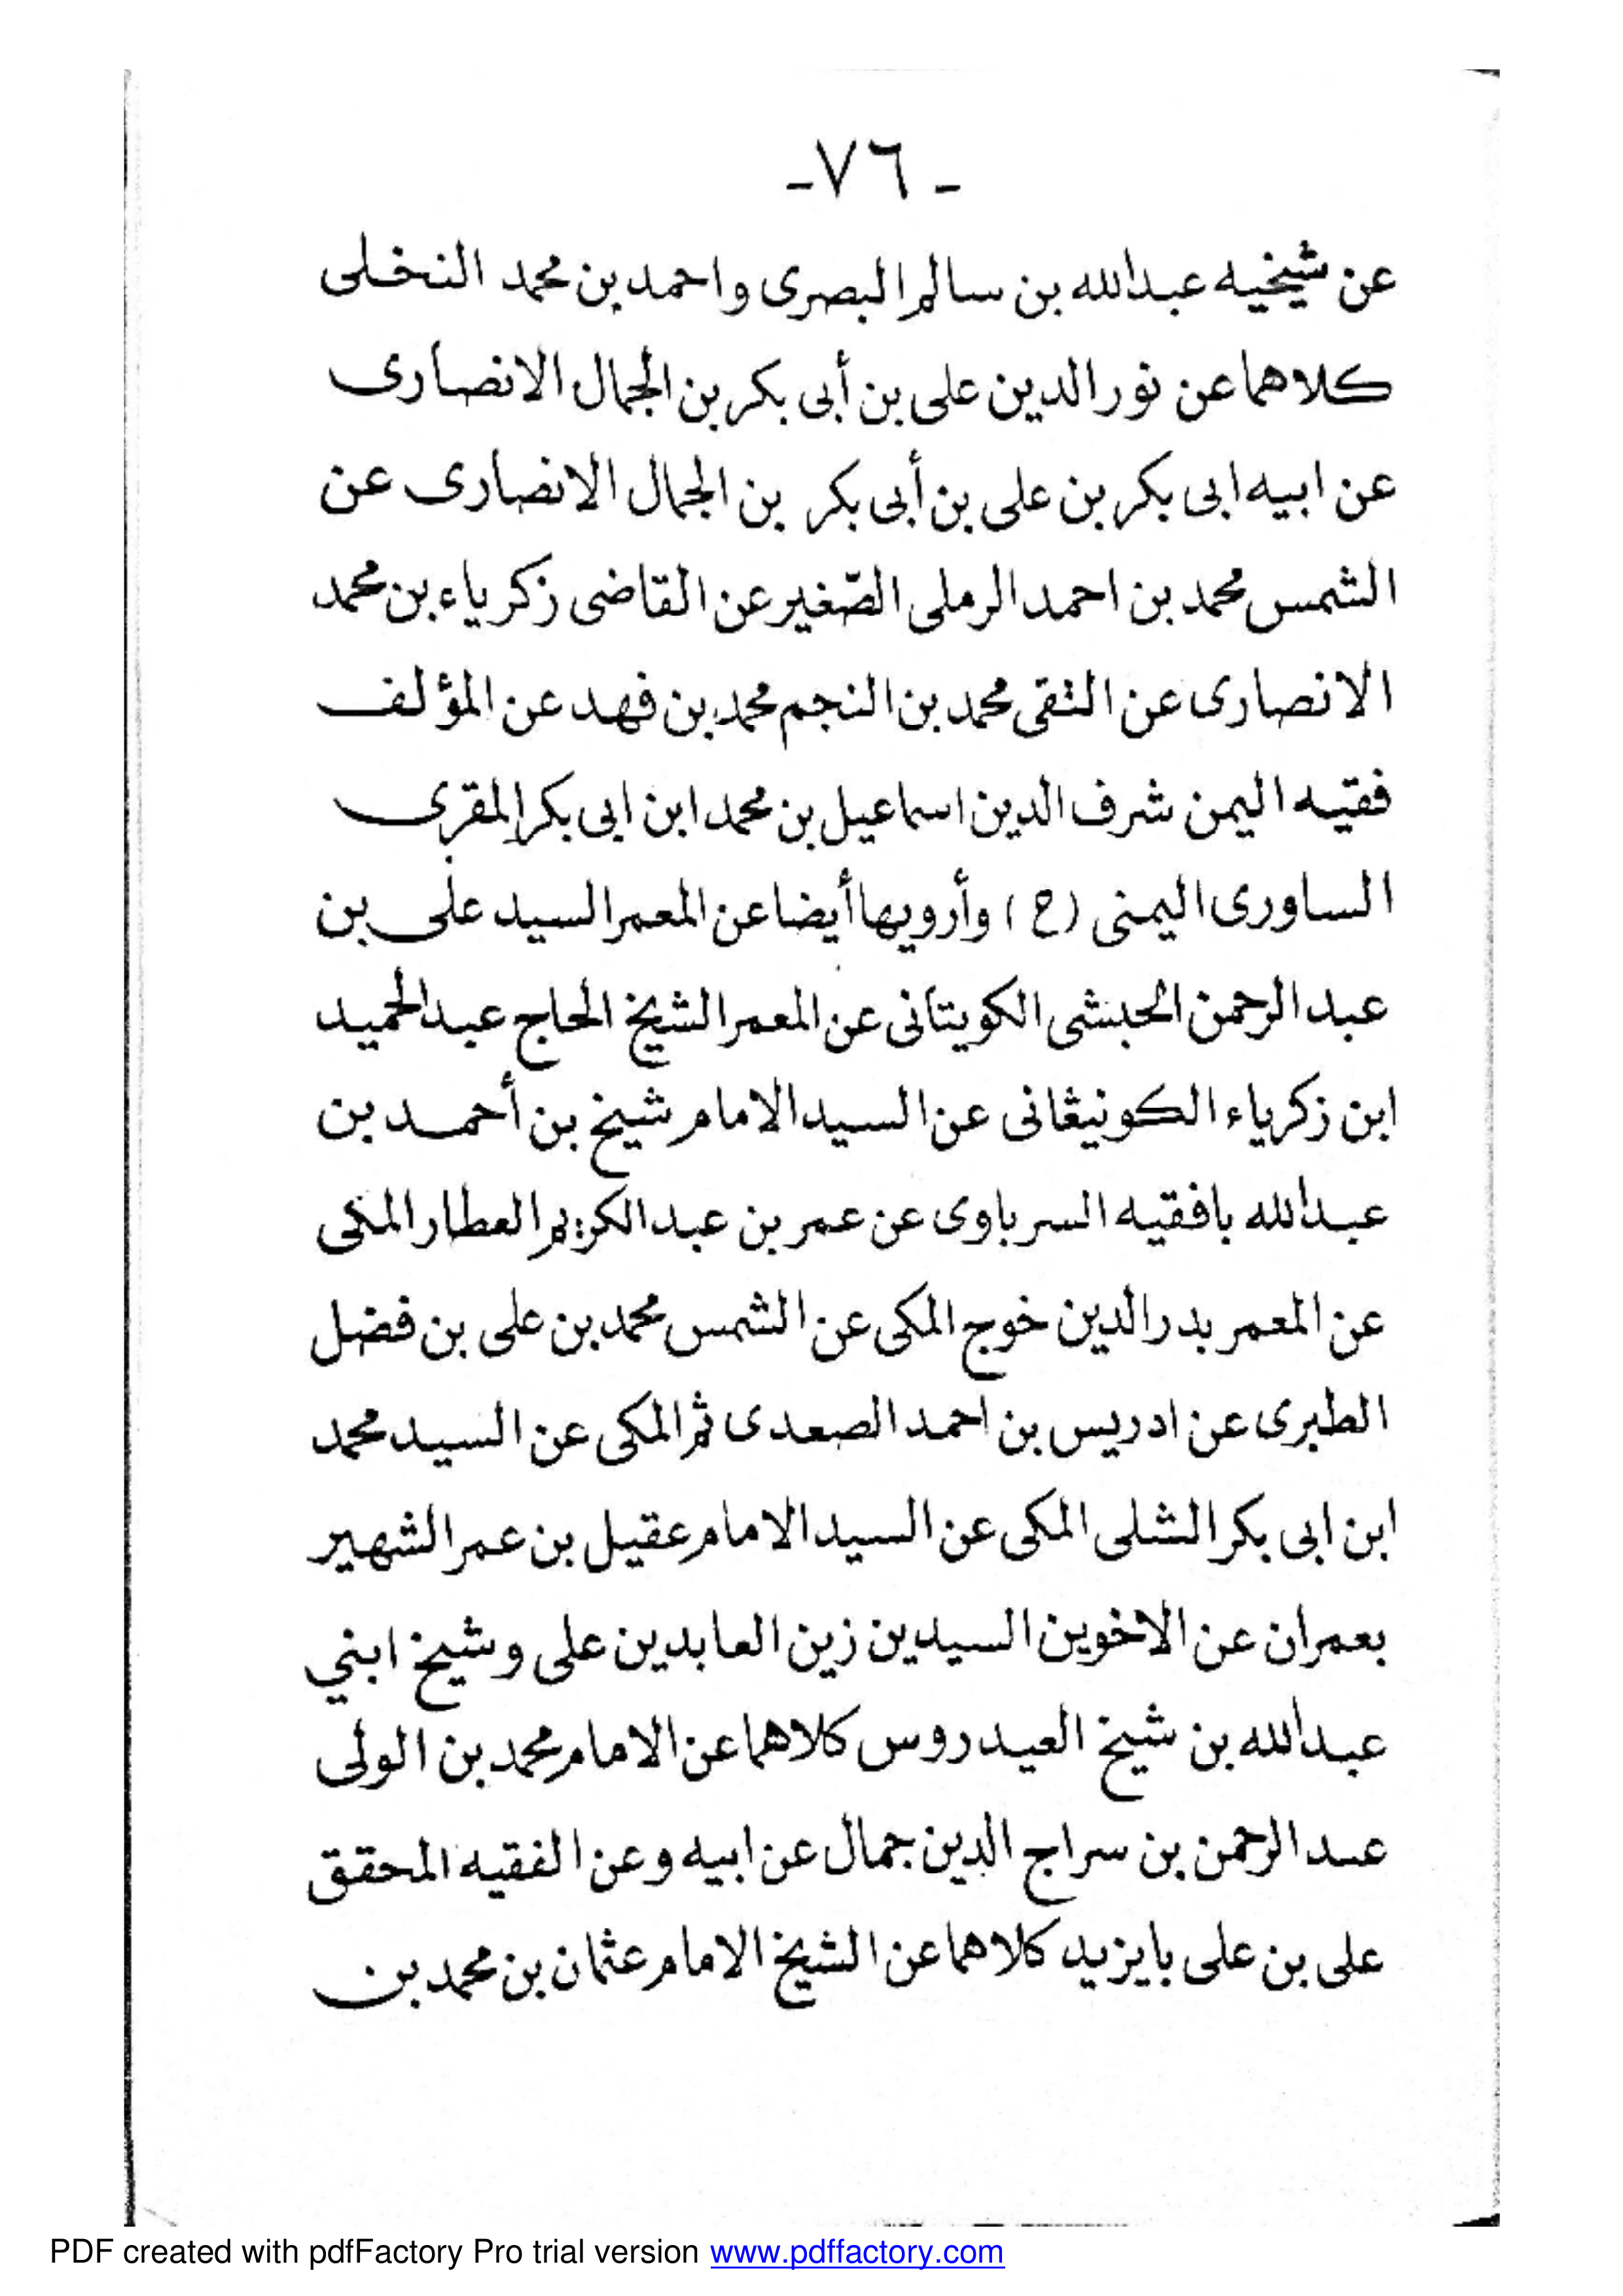 -٧٦-
عن شيخيه عبدالله بن سالم البصرى واحمد بن محمد النخلى
كلاهما عن نور الدين على بن أبى بكر بن الجمال الانصارى
عن ابيه ابى بكر بن على بن أبى بكر بن الجمال الانصارى عن
الشمس محمد بن احمد الرملى الصّغير عن القاضى زكرياء بن محمد
الانصارى عن التقى محمد بن النجم محمد بن فهد عن المؤلف
فقيه اليمن شرف الدين اسماعيل بن محمد ابن ابى بكر المقرى
الساورى اليمنى (ح) وأرويها أيضا عن المعمر السيد على بن
عبد الرحمن الحبشى الكويتانى عن المعمر الشيخ الحاج عبد الحميد
ابن زكرياء الكونيڠانى عن السيد الامام شيخ بن أحمد بن
عبدالله بافقيه السرباوى عن عمر بن عبد الكريم العطار المكى
عن المعمر بدر الدين خوج المكى عن الشمس محمد بن على بن فضل
الطبرى عن ادريس بن احمد الصعدى ثم المكى عن السيد محمد
ابن ابى بكر الشلى المكى عن السيد الامام عقيل بن عمر الشهير
بعمران عن الاخوين السيدين زين العابدين على وشيخ ابني
عبدالله بن شيخ العيدروس كلاهما عن الامام محمد بن الولى
عبد الرحمن بن سراج الدين جمال عن ابيه وعن الفقيه المحقق
على بن على بايزيد كلاهما عن الشيخ الامام عثمان بن محمد بن
PDF created with pdfFactory Pro trial version www.pdffactory.com